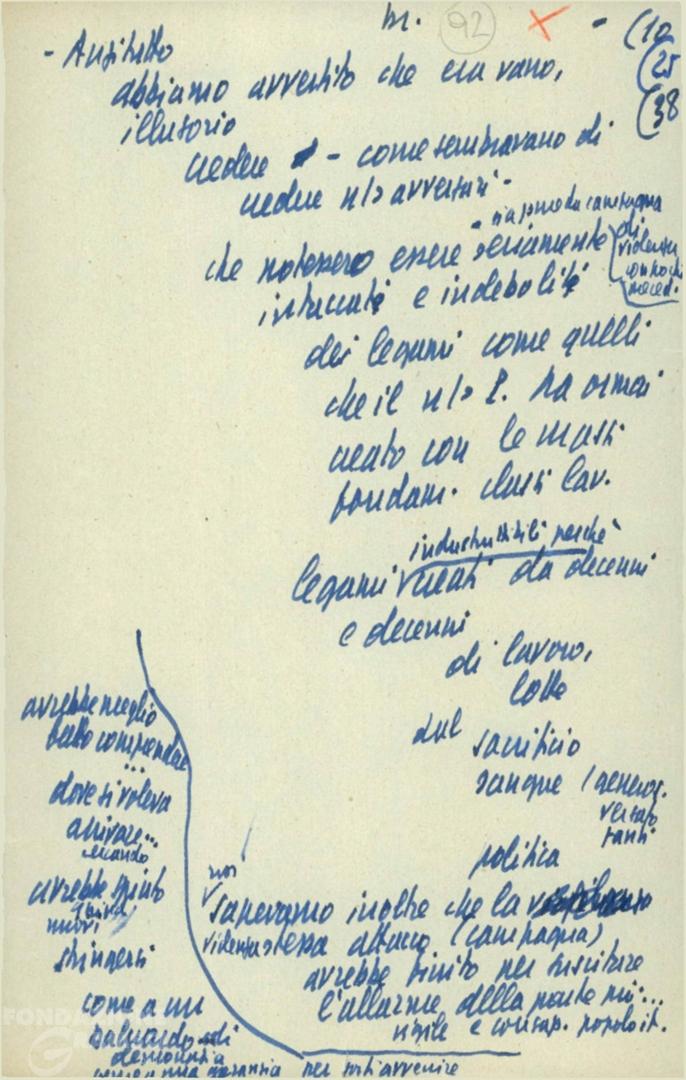 m. 92 - (10
- Anzitutto (25
abbiamo avvertito che era vano, (38
illusorio
credere - come sembravano di
credere n/s avversari -
- sia pure da campagna
che potessero essere seriamente di
violenta
intaccati e indeboliti
dei legami come quelli
che il n/s P. ha ormai
creato con le massi
fondam. classi lav.
indistruttibili perché
legami creati da decenni
e decenni
di lavoro,
lotte
dal
sacrificio
sangue / generos.
versato
tanti
politica
noi
sapevamo inoltre che la
violenza stessa attacco (campagna)
avrebbe finito per suscitare
l'allarme della parte più...
civile e consap. popolo it.
avrebbe meglio
fatto comprendere
...
dove si voleva
arrivare...
avrebbe spinto
nuovi
stringersi
come a un
baluardo di
democrazia
come a una garanzia per avvenire
FONDAZIONE
G